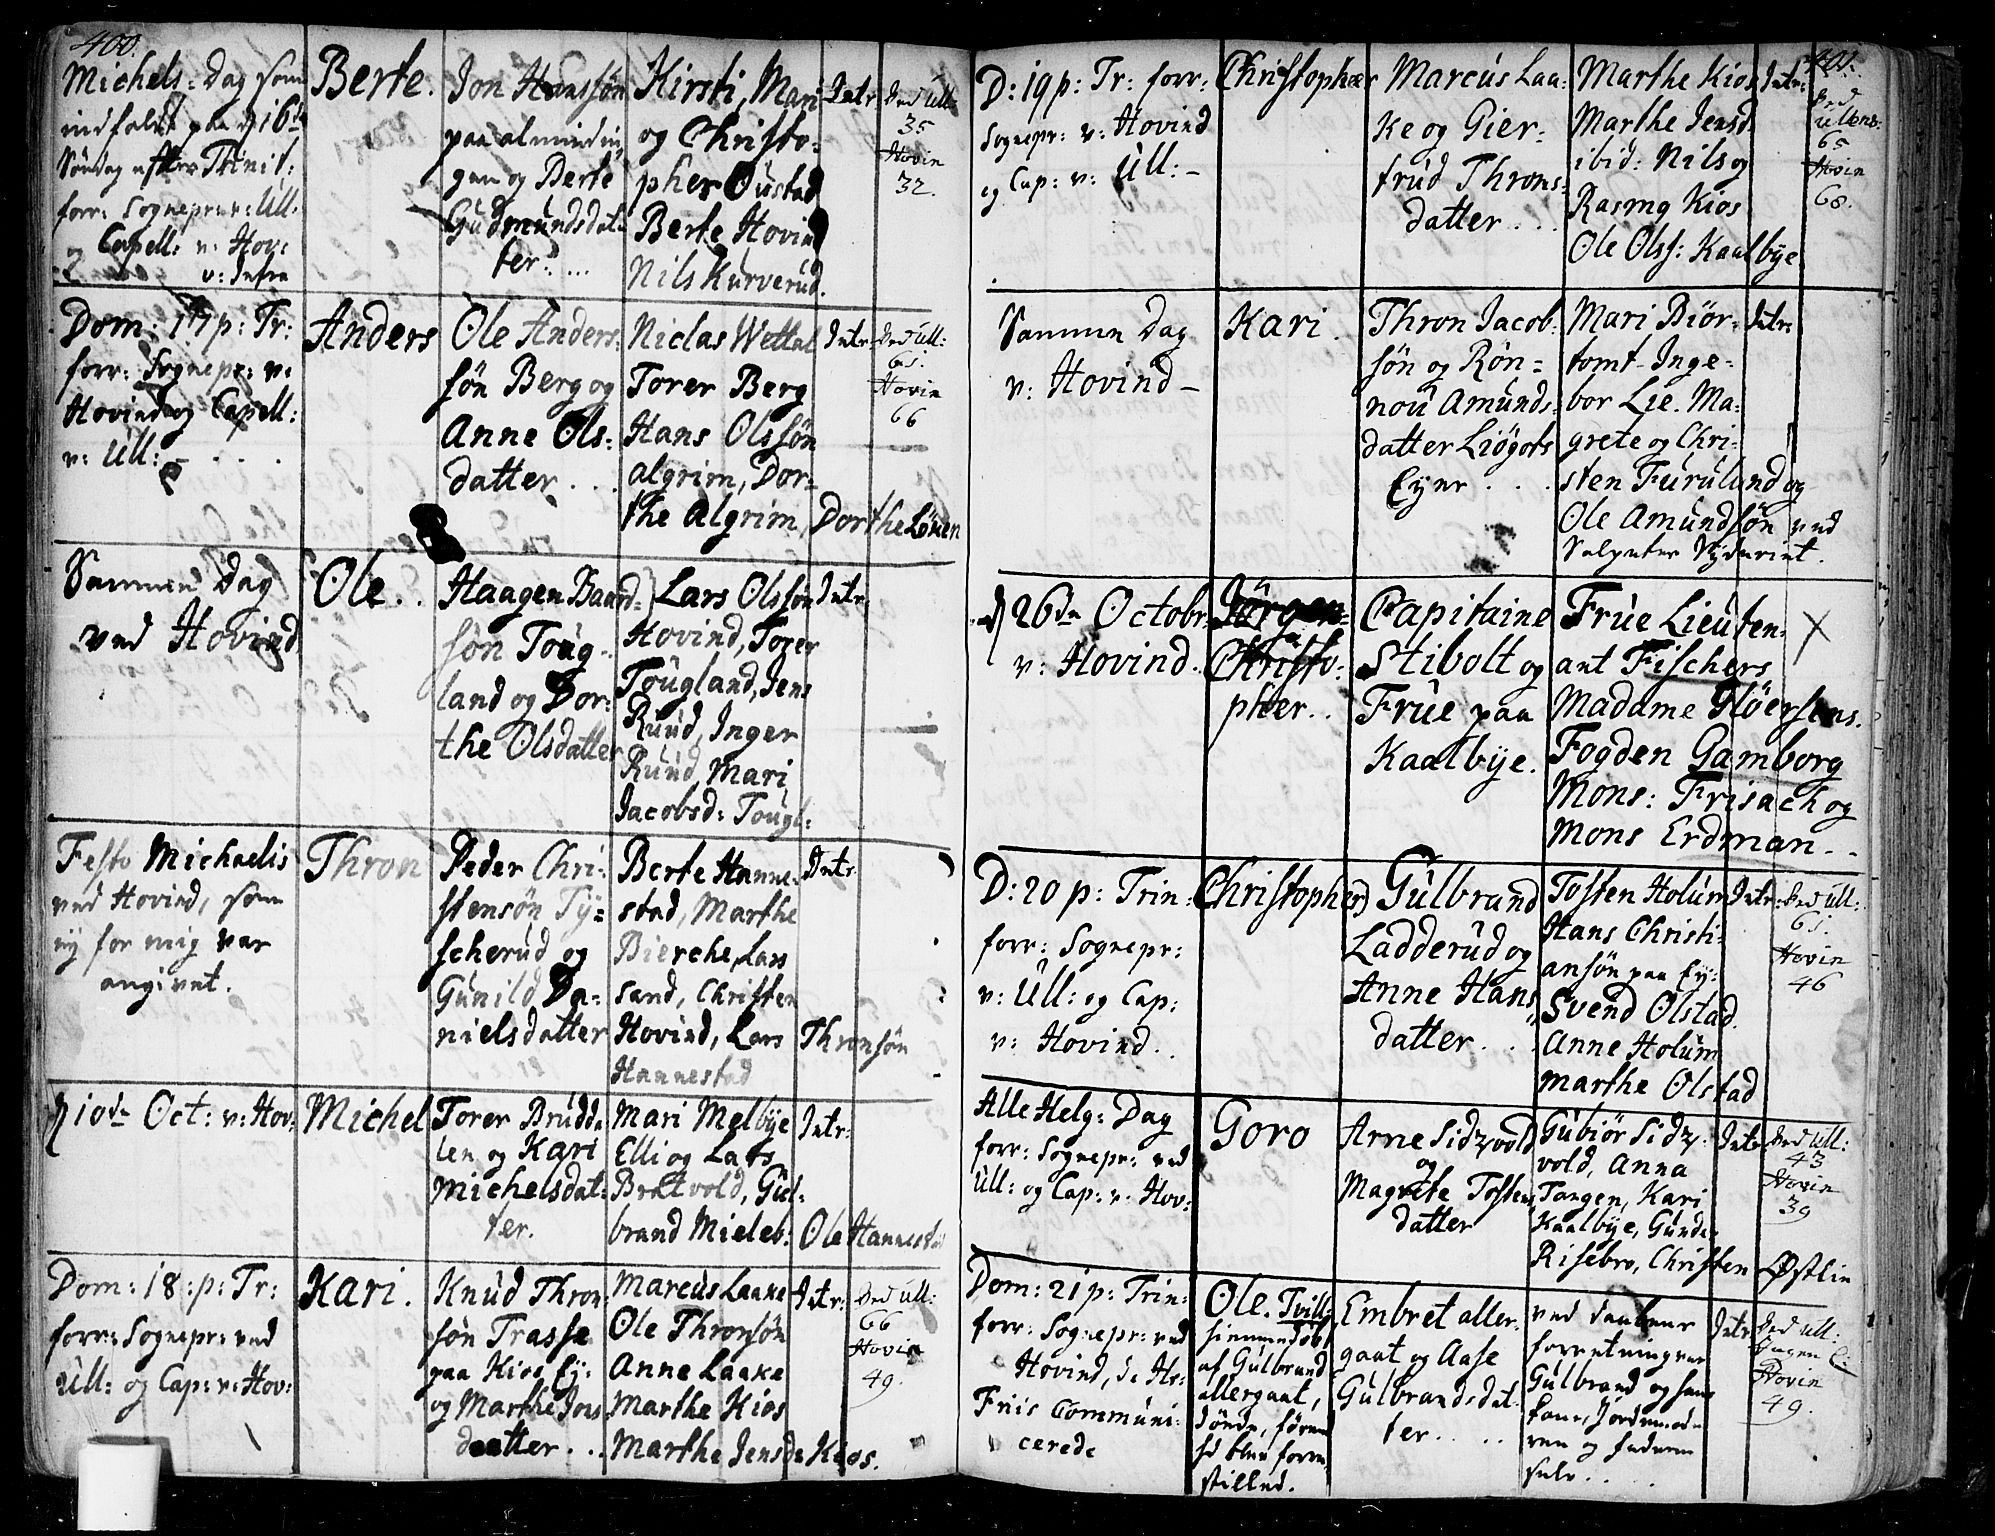 400.
Michels: Dag som
indfaldt paa d 16de
Søndag efter Trinit:
forr: Sognepr: v: Ull:
og Capell: v: Hov:
Berte.
Jon Hanssøn
paa almindin
gen og Berte
Gudmundsdat
ter: ...
Kirsti, Mari
og Christo:
pher Oustad
Berte Hovind
Nils Kurverud.
Intr:
Ved Ull:
35
Hovin
32.
Dom: 17 p: Tr:
forr: Sognepr: v:
Hovind og Capell:
v: Ull: - . . .
Anders
Ole Anders:
søn Berg og
Anne Ols:
datter . . .
Niclas Wettal
Torer Berg
Hans Olssøn
algrim, Dor=
the Algrim, Dorthe Löken
Intr:
Ved Ull:
65.
Hovin
66
Sammen Dag
ved Hovind
Ole . .
Haagen Baard=
søn Toug-
land og Dor:
the Olsdatter
Lars Olssøn
Hovind, Torer
Tougland, Jens
Ruud, Inger
Ruud, Mari
Jacobsd: Tougl:
Intr:
Festo Michaelis
ved Hovind, som
ey for mig var
angivet.
Thron
Peder Chri-
stensøn Ty=
scherud og
Gunild Da-
nielsdatter
Berte Hanne-
stad, Marthe
Bierche, Lars
Sand, Christen
Hovind, Lars Thronsøn
Hannestad
Intr:
d 10de Oct: v: Hov:
Michel
Torer Brudda
len og Kari
Michelsdat:
ter.
Mari Melbye
Elli og Lars
Bratvold, Gul:
brand Mieleb: Ole Hannestad
Intr:
Dom: 18: p: Tr:
forr: Sognepr: ved
Ull: og Cap: v: Hov:
Kari.
Knud Thron
søn Trasse
paa Kios Ey:
og Marthe Jens
datter . . .
Marcus Laake
Ole Thronsøn
Anne Laake
Marthe Kios
Marthe Jensd: Kios.
Intr:
Ved Ull:
66
Hovin
49.
401.
D: 19 p: Tr: forr:
Sognepr: v: Hovind
og Cap: v: Ull: -
Christopher
Marcus Laa=
ke og Gier=
trud Throns:
datter . . .
Marthe Kios
Marthe Jensd:
ibid: Nils og
Rasmg Kios
Ole Olss: Kaalbye
Intr:
Ved
Ullens:
65
Hovin
68.
Sammen Dag
v: Hovind -
Kari.
Thron Jacob:
søn og Rön=
nou Amunds:
datter Liögots
Eyer . . .
Mari Biör=
tomt - Inge=
bor Lie. Ma:
grete og Chri:
sten Furulund og
Ole Amundsøn ved
Salpeter Syderiet.
Intr:
d 26de Octobr:
v: Hovind.
Jörgen=
Christo-
pher . .
Capitaine
Stibolt og
Frue paa
Kaalbye.
Frue Lieuten:
ant Fischers
Madame Glöersens.
Fogden Gamborg
Mons: Frisach og
Mons Erdman . .
X
D: 20 p: Trin:
forr: Sognepr:
v: Ull: og Cap:
v: Hovind . .
Christopher
Gulbrand
Ladderud og
Anne Hans
datter . . .
Tosten Holum
Hans Christi=
ansøn paa Ey:
Svend Olstad.
Anne Holum
Marthe Olstad
Intr:
Ved Ull:
65.
Hovin
46
Alle Helg: Dag
forr: Sognepr: ved
Ull: og Cap: v: Hov:
Goro
Arne Sidzvold
og
Magrete Tosten
datter
Gubiör Sidz:
vold, Anna
Tangen, Kari
Kaalbye, Gunder
Risebro, Christen Østlie
Intr:
Ved Ull:
43
Hovin
39
Dom: 21 p: Trin:
forr: Sognepr: ved
Hovind,
Friis Communi:
cerede
Ole. Tvill:
hiemmedöbt
af Gulbrand
allergaat,
döde, förend
han blev frem
stilled.
Embret aller:
gaat og Aase
Gulbrandsdat
ter . . . .
ved daabens
forretning var
Gulbrand og hans
kone, Jordemode
ren og faderen
selv . . .
Intr:
Ved Ull:
Ingen
Hovin
49.